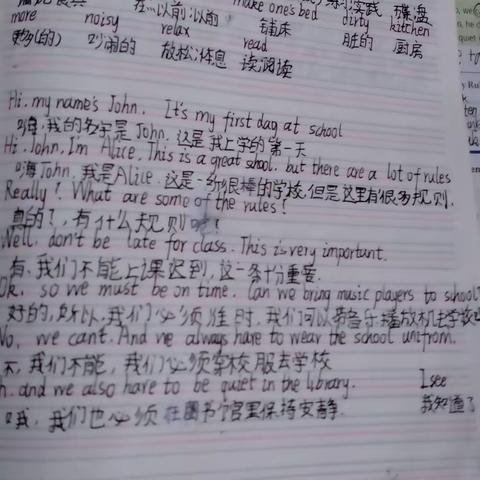 make one's bed 实践 碟,盘
more noisy relax 铺床 dirty kitchen
更多(的) 吵闹的 放松;休息 read 脏的 厨房
读;阅读
Hi, my name's John. It's my first day at school
嗨,我的名字是John.这是我上学的第一天
Hi. John. I'm Alice. This is a great school. but there are a lot of rules
嗨John.我是Alice.这是一所很棒的学校,但是这里有很多规则.
Really? What are some of the rules?
真的?,有什么规则呢?
Well, don't be late for class. This is very important.
有,我们不能上课迟到,这一条十分重要.
Ok, so we must be on time. Can we bring music players to school?
好的,所以,我们必须准时,我们可以带音乐播放机去学校
No, we can't. And we always have to wear the school unifrom.
不,我们不能,我们必须穿校服去学校
and we also have to be quiet in the library. I see
哦,我们也必须在图书馆里保持安静. 我知道了